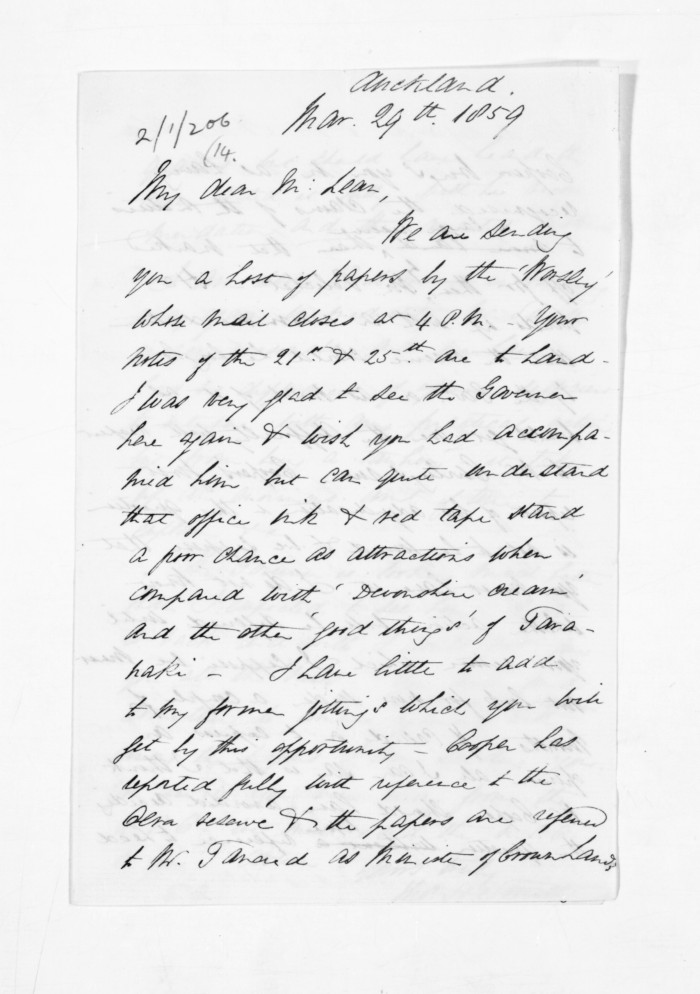 Auckland.
Mar. 29th. 1859
2/1/206
(14.
My dear Mr. Lean,
We are sending
you a host of papers by the 'Worsley'
whose mail closes at 4 P.M. - Your
notes of the 21st & 25th are to hand -
I was very glad to see the Governor
here again & wish you had accompa-
nied him but can quite understand
that office ink & red tape stand
a poor chance as attractions when
compared with 'Devonshire cream'
and the other 'good things' of Tara-
naki - I have little to add
to my former jottings which you will
get by this opportunity - Cooper has
reported fully with reference to the
reserve & the papers are referred
to Mr. Tancred as Minister of Crown Lands